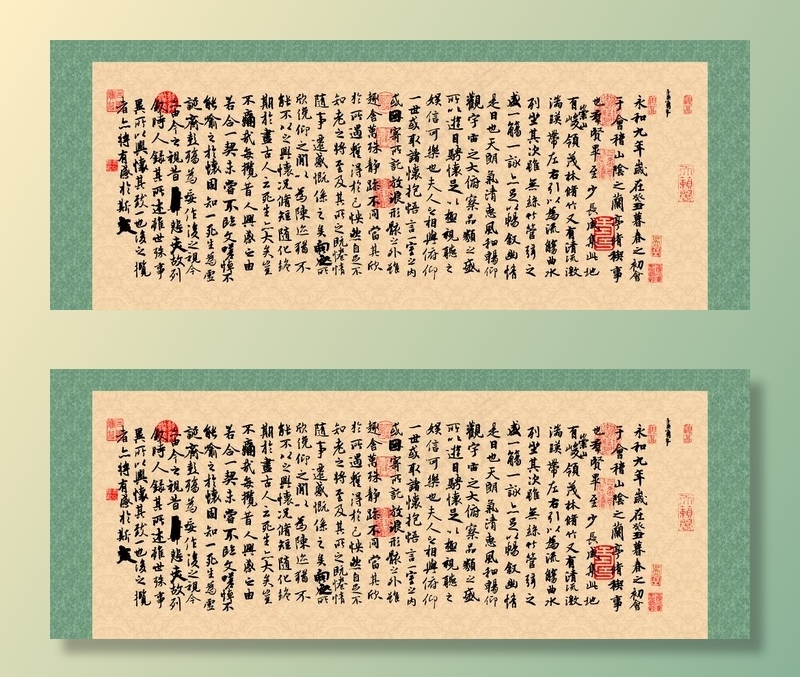 永和九年歲在癸丑暮春之初會
于會稽山陰之蘭亭脩稧事
也羣賢畢至少長咸集此地
有崇山峻領茂林脩竹又有清流激
湍暎帶左右引以為流觴曲水
列坐其次雖無絲竹管弦之
盛一觴一詠亦足以暢敘幽情
是日也天朗氣清惠風和暢仰
觀宇宙之大俯察品類之盛
所以遊目騁懷足以極視聽之
娛信可樂也夫人之相與俯仰
一世或取諸懷抱悟言一室之內
或因寄所託放浪形骸之外雖
趣舍萬殊靜躁不同當其欣
於所遇蹔得於己怏然自足不
知老之將至及其所之既惓情
隨事遷感慨係之矣向之所
欣俛仰之閒以為陳迹猶不
能不以之興懷況脩短隨化終
期於盡古人云死生亦大矣豈
不痛哉每攬昔人興感之由
若合一契未嘗不臨文嗟悼不
能喻之於懷固知一死生為虛
誕齊彭殤為妄作後之視今
亦由今之視昔悲夫故列
敘時人錄其所述雖世殊事
異所以興懷其致一也後之攬
者亦將有感於斯文
永和九年歲在癸丑暮春之初會
于會稽山陰之蘭亭脩稧事
也羣賢畢至少長咸集此地
有崇山峻領茂林脩竹又有清流激
湍暎帶左右引以為流觴曲水
列坐其次雖無絲竹管弦之
盛一觴一詠亦足以暢敘幽情
是日也天朗氣清惠風和暢仰
觀宇宙之大俯察品類之盛
所以遊目騁懷足以極視聽之
娛信可樂也夫人之相與俯仰
一世或取諸懷抱悟言一室之內
或因寄所託放浪形骸之外雖
趣舍萬殊靜躁不同當其欣
於所遇蹔得於己怏然自足不
知老之將至及其所之既惓情
隨事遷感慨係之矣向之所
欣俛仰之閒以為陳迹猶不
能不以之興懷況脩短隨化終
期於盡古人云死生亦大矣豈
不痛哉每攬昔人興感之由
若合一契未嘗不臨文嗟悼不
能喻之於懷固知一死生為虛
誕齊彭殤為妄作後之視今
亦由今之視昔悲夫故列
敘時人錄其所述雖世殊事
異所以興懷其致一也後之攬
者亦將有感於斯文